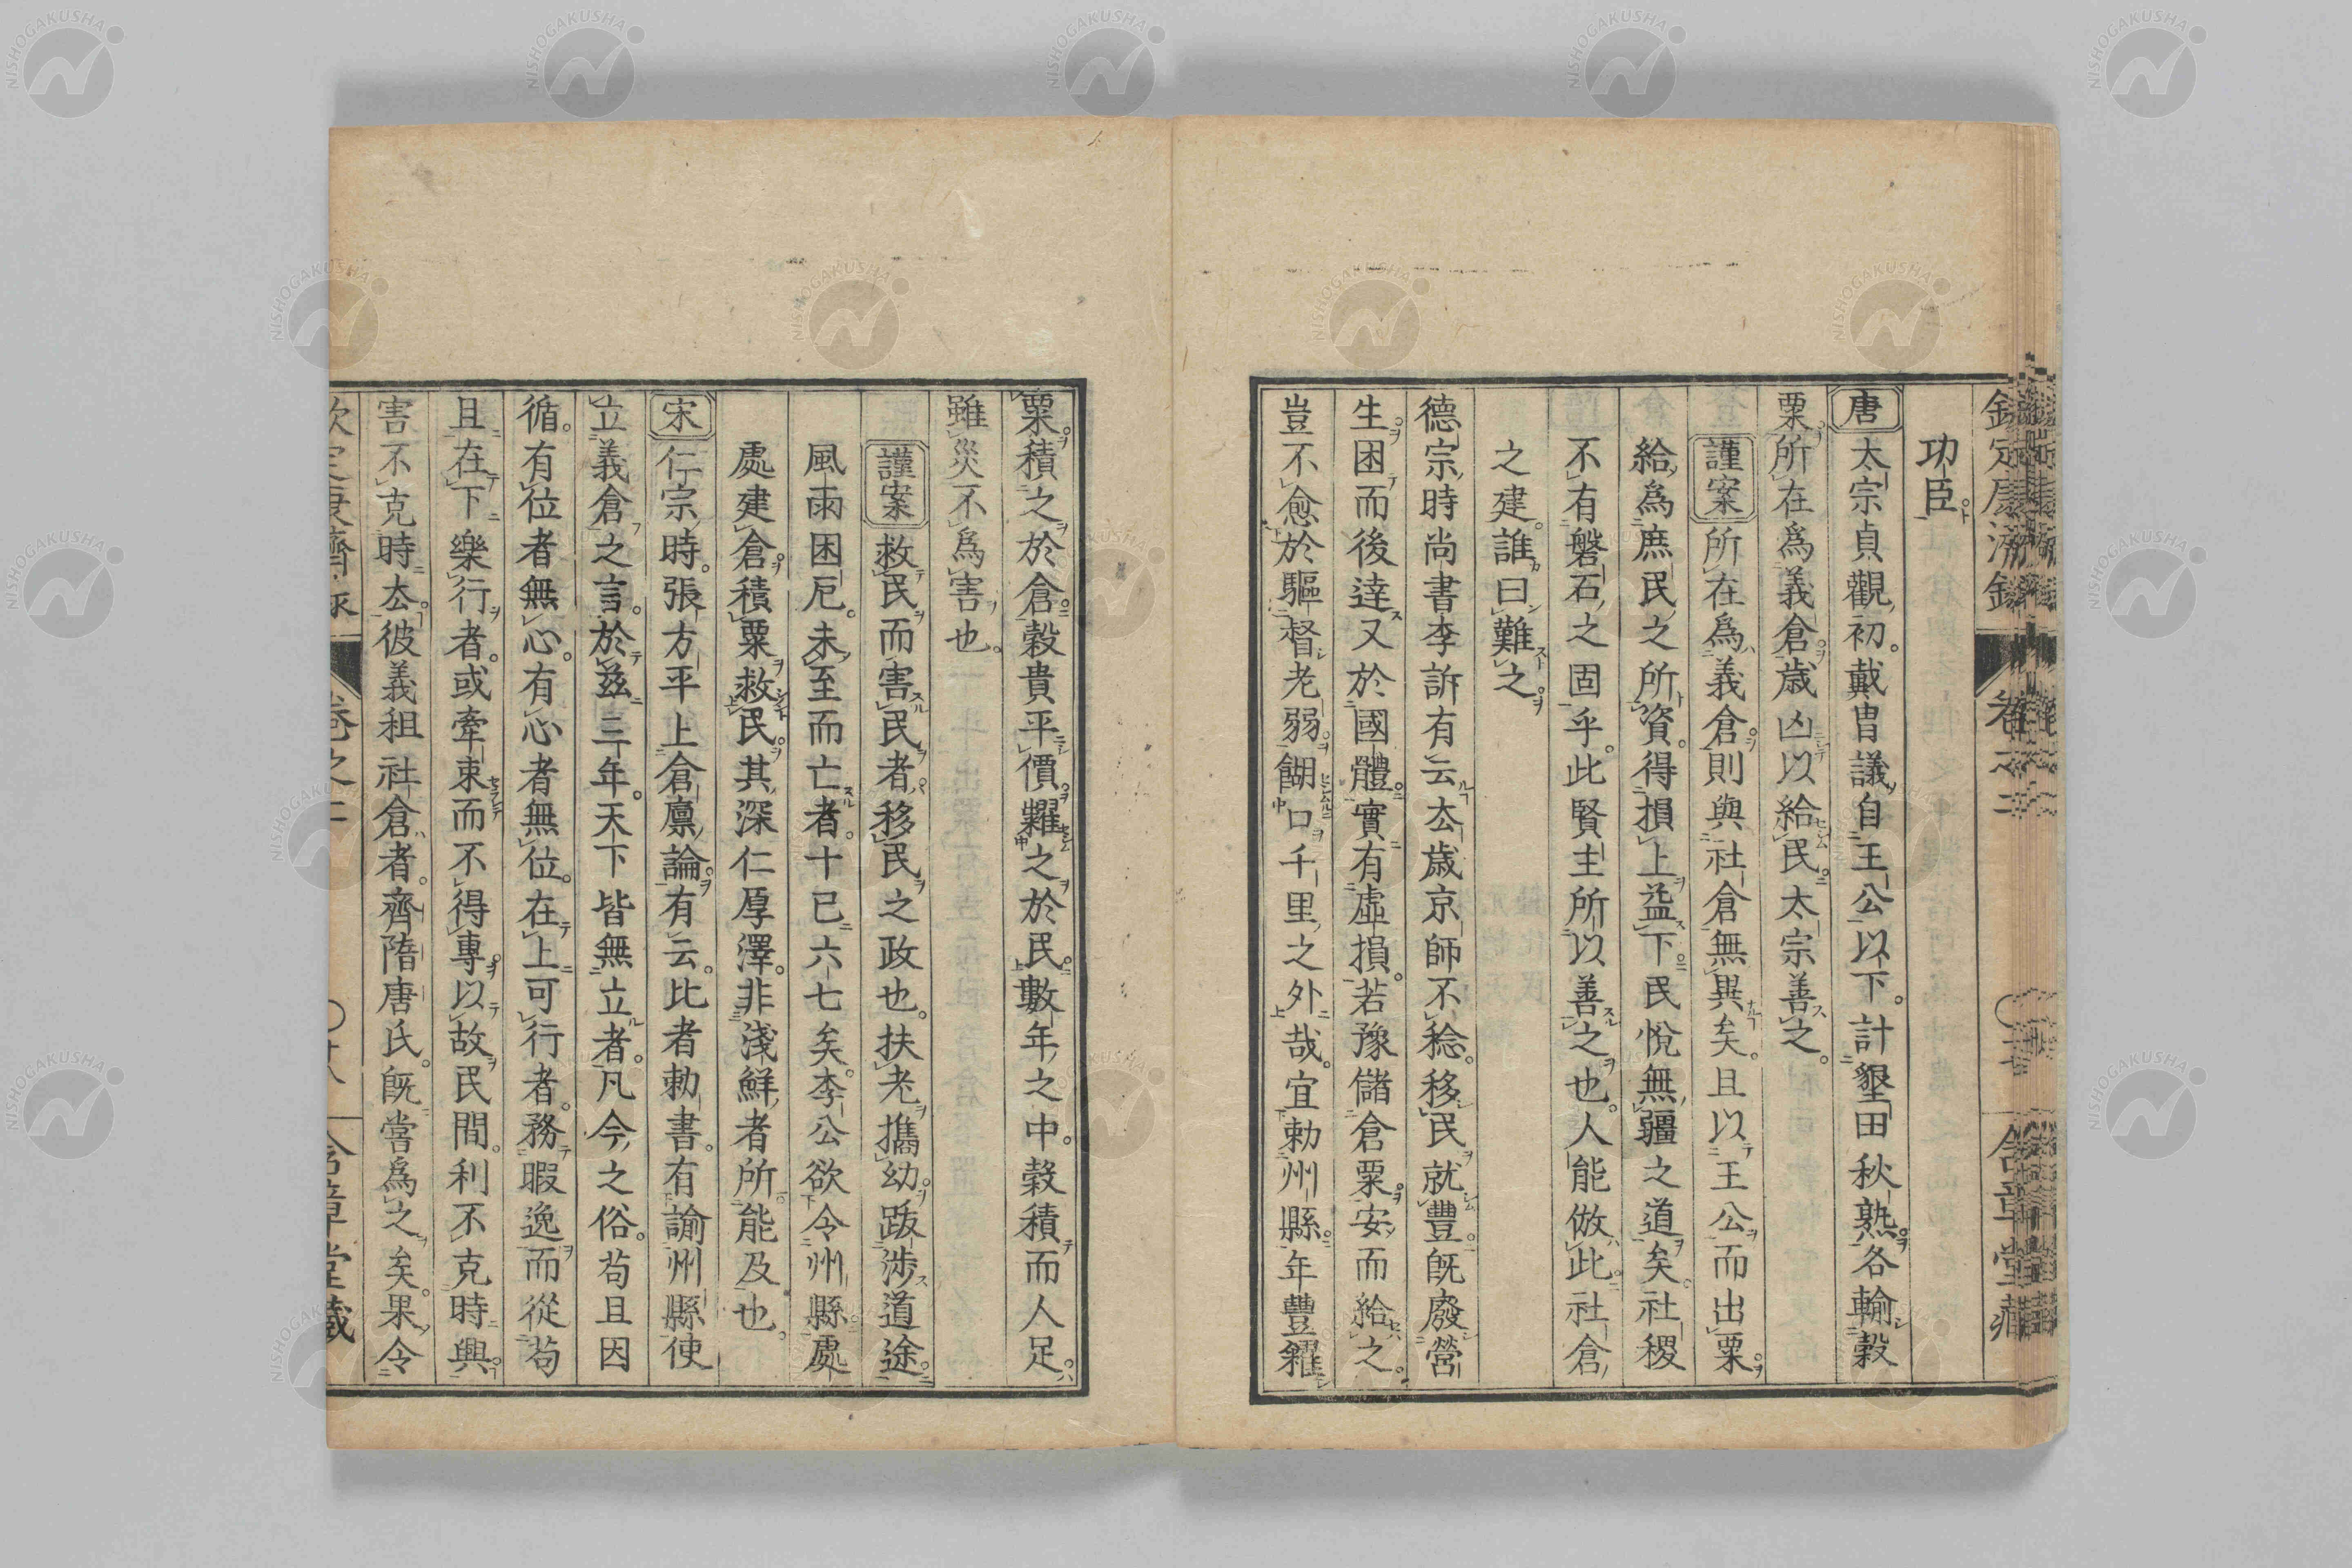 功臣
唐 太宗貞觀初。戴冑議自王公以下。計墾田秋熟。各輸穀
粟所在爲義倉。歲凶以給民。太宗善之。
謹案 所在爲義倉。則與社倉無異矣。且以王公而出粟。
給爲庶民之所資。得損上益下。民悅無疆之道矣。社稷
不有磐石之固乎。此賢主所以善之也。人能倣此。社倉
之建。誰曰難之。
德宗時尚書李訢有云去歲京師不稔。移民就豐。旣廢營
生。困而後達。又於國體。實有虛損。若豫儲倉粟。安而給之。
豈不愈於驅督老弱。餬口千里之外哉。宜勅州縣。年豐糴
粟。積之於倉。穀貴平價。糶之於民。數年之中。穀積而人足。
雖災不爲害也。
謹案 救民而害民者。移民之政也。扶老攜幼。跋涉道途。
風雨困厄。未至而亡者。十已六七矣。李公欲令州縣處
處建倉。積粟救民。其深仁厚澤。非淺鮮者所能及也。
宋 仁宗時。張方平上倉廩論。有云。比者勅書。有諭州縣使
立義倉之言。於玆三年。天下皆無立者。凡今之俗。苟且因
循。有位者無心。有心者無位。在上可行者。務暇逸而從苟
且。在下樂行者。或牽束而不得專。以故民間。利不克時興。
害不克時去。彼義租社倉者。齊隋唐氏。旣嘗爲之矣。果令
卷之二